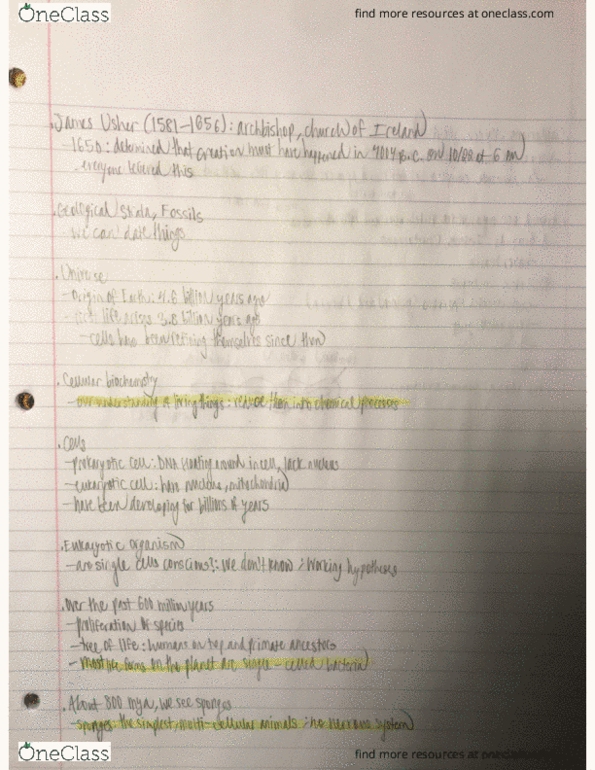 OneClass
find more resources at oneclass.com
. James Usher (1581-1656): archbishop, church of Ireland
- 1650: determined that creation must have happened in 4014 B.C. on 10/22 at 6
. everyone believed this
. Geological Strata, Fossils
we can date things
. Universe
- Origin of Earth: 4.6 billion years ago
- life arises 3.8 billion years ago
- cells have been refining themselves since then
. Cellular biochemistry
- our understanding of living things: reduce them into chemical processes
. Cells
- prokaryotic cell: DNA floating around in cell, lack nucleus
- eukaryotic cell: have nucleus, mitochondria
- have been developing for billions of years
. Eukaryotic organism
- are single cells conscious?: we don't know : working hypotheses
. Over the past 600 million years
- proliferation of species
- tree of life: humans on top and primate ancestors
- most life forms on the planet are single-celled bacteria
. About 800 mya, we see sponges
- sponges: the simplest, multi-cellular animals : no nervous system
OneClass
find more resources at oneclass.com